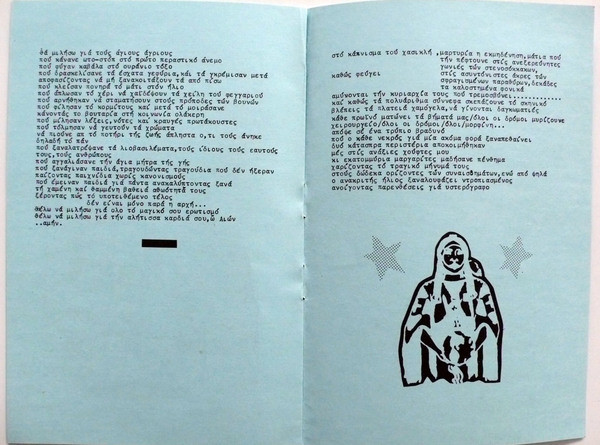 θά μιλήσω γιά τούς άγιους άγριους
πού κάνανε ωτο-στόπ στό πρώτο περαστικό άνεμο
πού φύγαν καβάλα στό ουράνιο τόξο
πού δρασκελίσανε τά έσχατα γεφύρια,καί τά γκρέμισαν μετά
αποφασίζοντας νά μή ξανακοιτάξουν τά από πίσω
πού κλείσαν πονηρά τό μάτι στόν ήλιο
πού άπλωσαν τό χέρι νά χαϊδέψουν τά χείλη τού φεγγαριού
πού αρνήθηκαν νά σταματήσουν στούς πρόποδες τών βουνών
πού πήδησαν τό κορμί τους καί μετά τό μοιράσανε
κάνοντάς το βουτάρια στή κοινωνία ολάκερη
πού μίλησαν λέξεις,νότες καί κραυγές πρωτάκουστες
πού τόλμησαν νά γευτούν τά χρώματα
νά πιούνε απ τό ποτήρι τής ζωής άπληστα ο,τι τούς άνηκε
δηλαδή τό πάν
πού ξαναλατρέψανε τά λιοβασιλέματα,τούς ίδιους τούς εαυτούς
τους,τούς ανθρώπους
πού αγγαλιάσανε τήν άγια μήτρα τής γής
πού ξανάγιναν παιδιά,τραγουδώντας τραγούδια πού δέν ήξεραν
παίζοντας παιγνίδια χωρίς κανονισμούς
πού έμειναν παιδιά γιά πάντα ανακαλύπτοντας ξανά
τή χαμένη καί θαμμένη βαθειά αθωότητά τους
ξέροντας πώς το υποτειθέμενο τέλος
δέν είναι μόνο παρά η αρχή...
θέλω νά μιλήσω γιά όλο τό μαγικό σου ερωτισμό
θέλω νά μιλήσω γιά τήν αλήτισσα καρδιά σου,ώ Αιών
..αμήν.
στό κάπνισμα τού χασικλή ,μαρτυρία η εκμηδένηση,μάτια πού
τήν πέφτουνε στίς ανεξερεύνητες
γωνιές τών στενοσόκκακων,
καθώς φεύγει στίς ασυντόνιστες άκρες τών
σφραγισμένων παραθύρων,δεκάδες
τα καλοστημένα φονικά
αμύνονται τήν κυριαρχία τους πού τρεμοσβύνει............
καί καθώς τά πολυάριθμα σύννεφα σκεπάζουνε τό σκηνικό
βλέπεις τά πλατειά χαμόγελα,νά γίνονται δαγκωματιές
κάθε πρωϊνό ματώνει τά βήματά μας/όλοι οι δρόμοι μυρίζουνε
χειρουργείο/όλοι οι δρόμοι/όλοι/μορφίνη...
απόψε σέ ένα τρύπιο βραδυνό
πού ο κάθε νεκρός γιά μία ακόμα φορά ξαναπεθαίνει
δυό κάτασπρα περιστέρια αποκοιμήθηκαν
μές στίς ανάξιες χούφτες μου
κι εκατομμύρια μαργαρίτες μαδήσανε πένθημα
χαρίζοντας τό τραγικό μήνυμά τους
στούς δώδεκα ορίζοντες τών συναισθημάτων,ενώ από ψηλά
ο ανακριτής ήλιος ξαναλουφάζει ντροπιασμένος
ανοίγοντας παρενθέσεις γιά υστερόγραφο